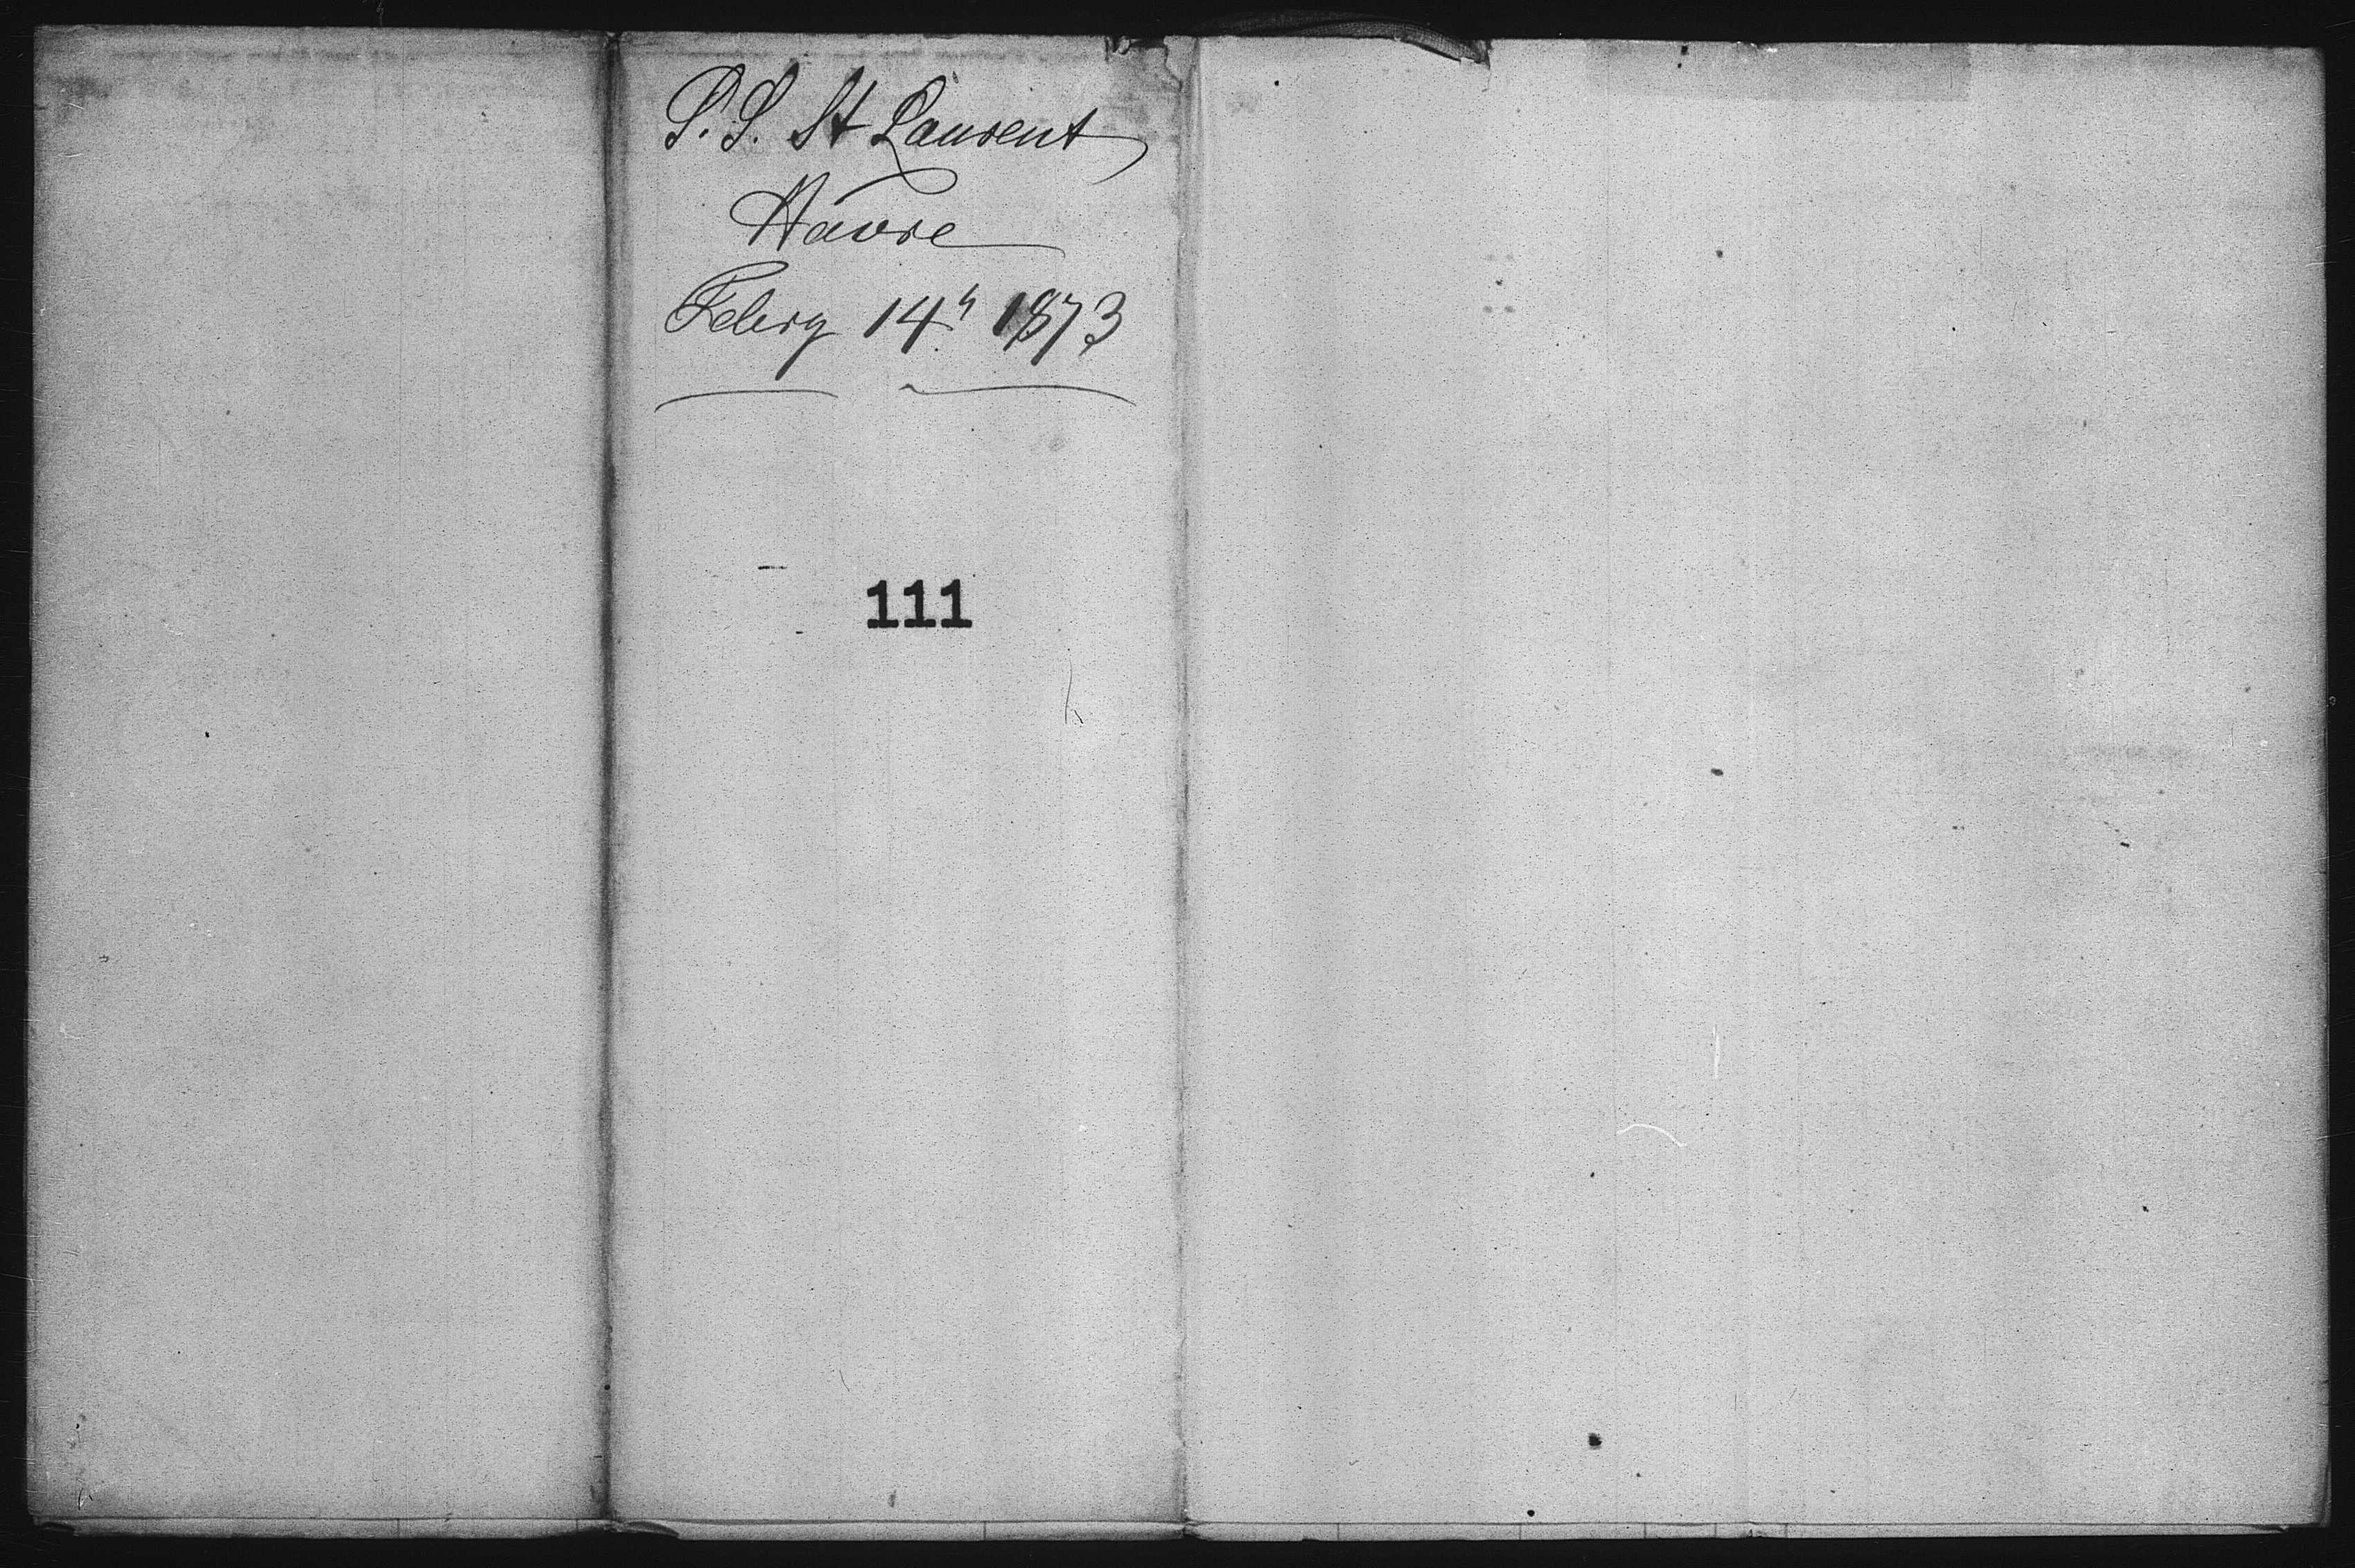 S.S. St Laurent
Havre
Febry 14h 1873
111